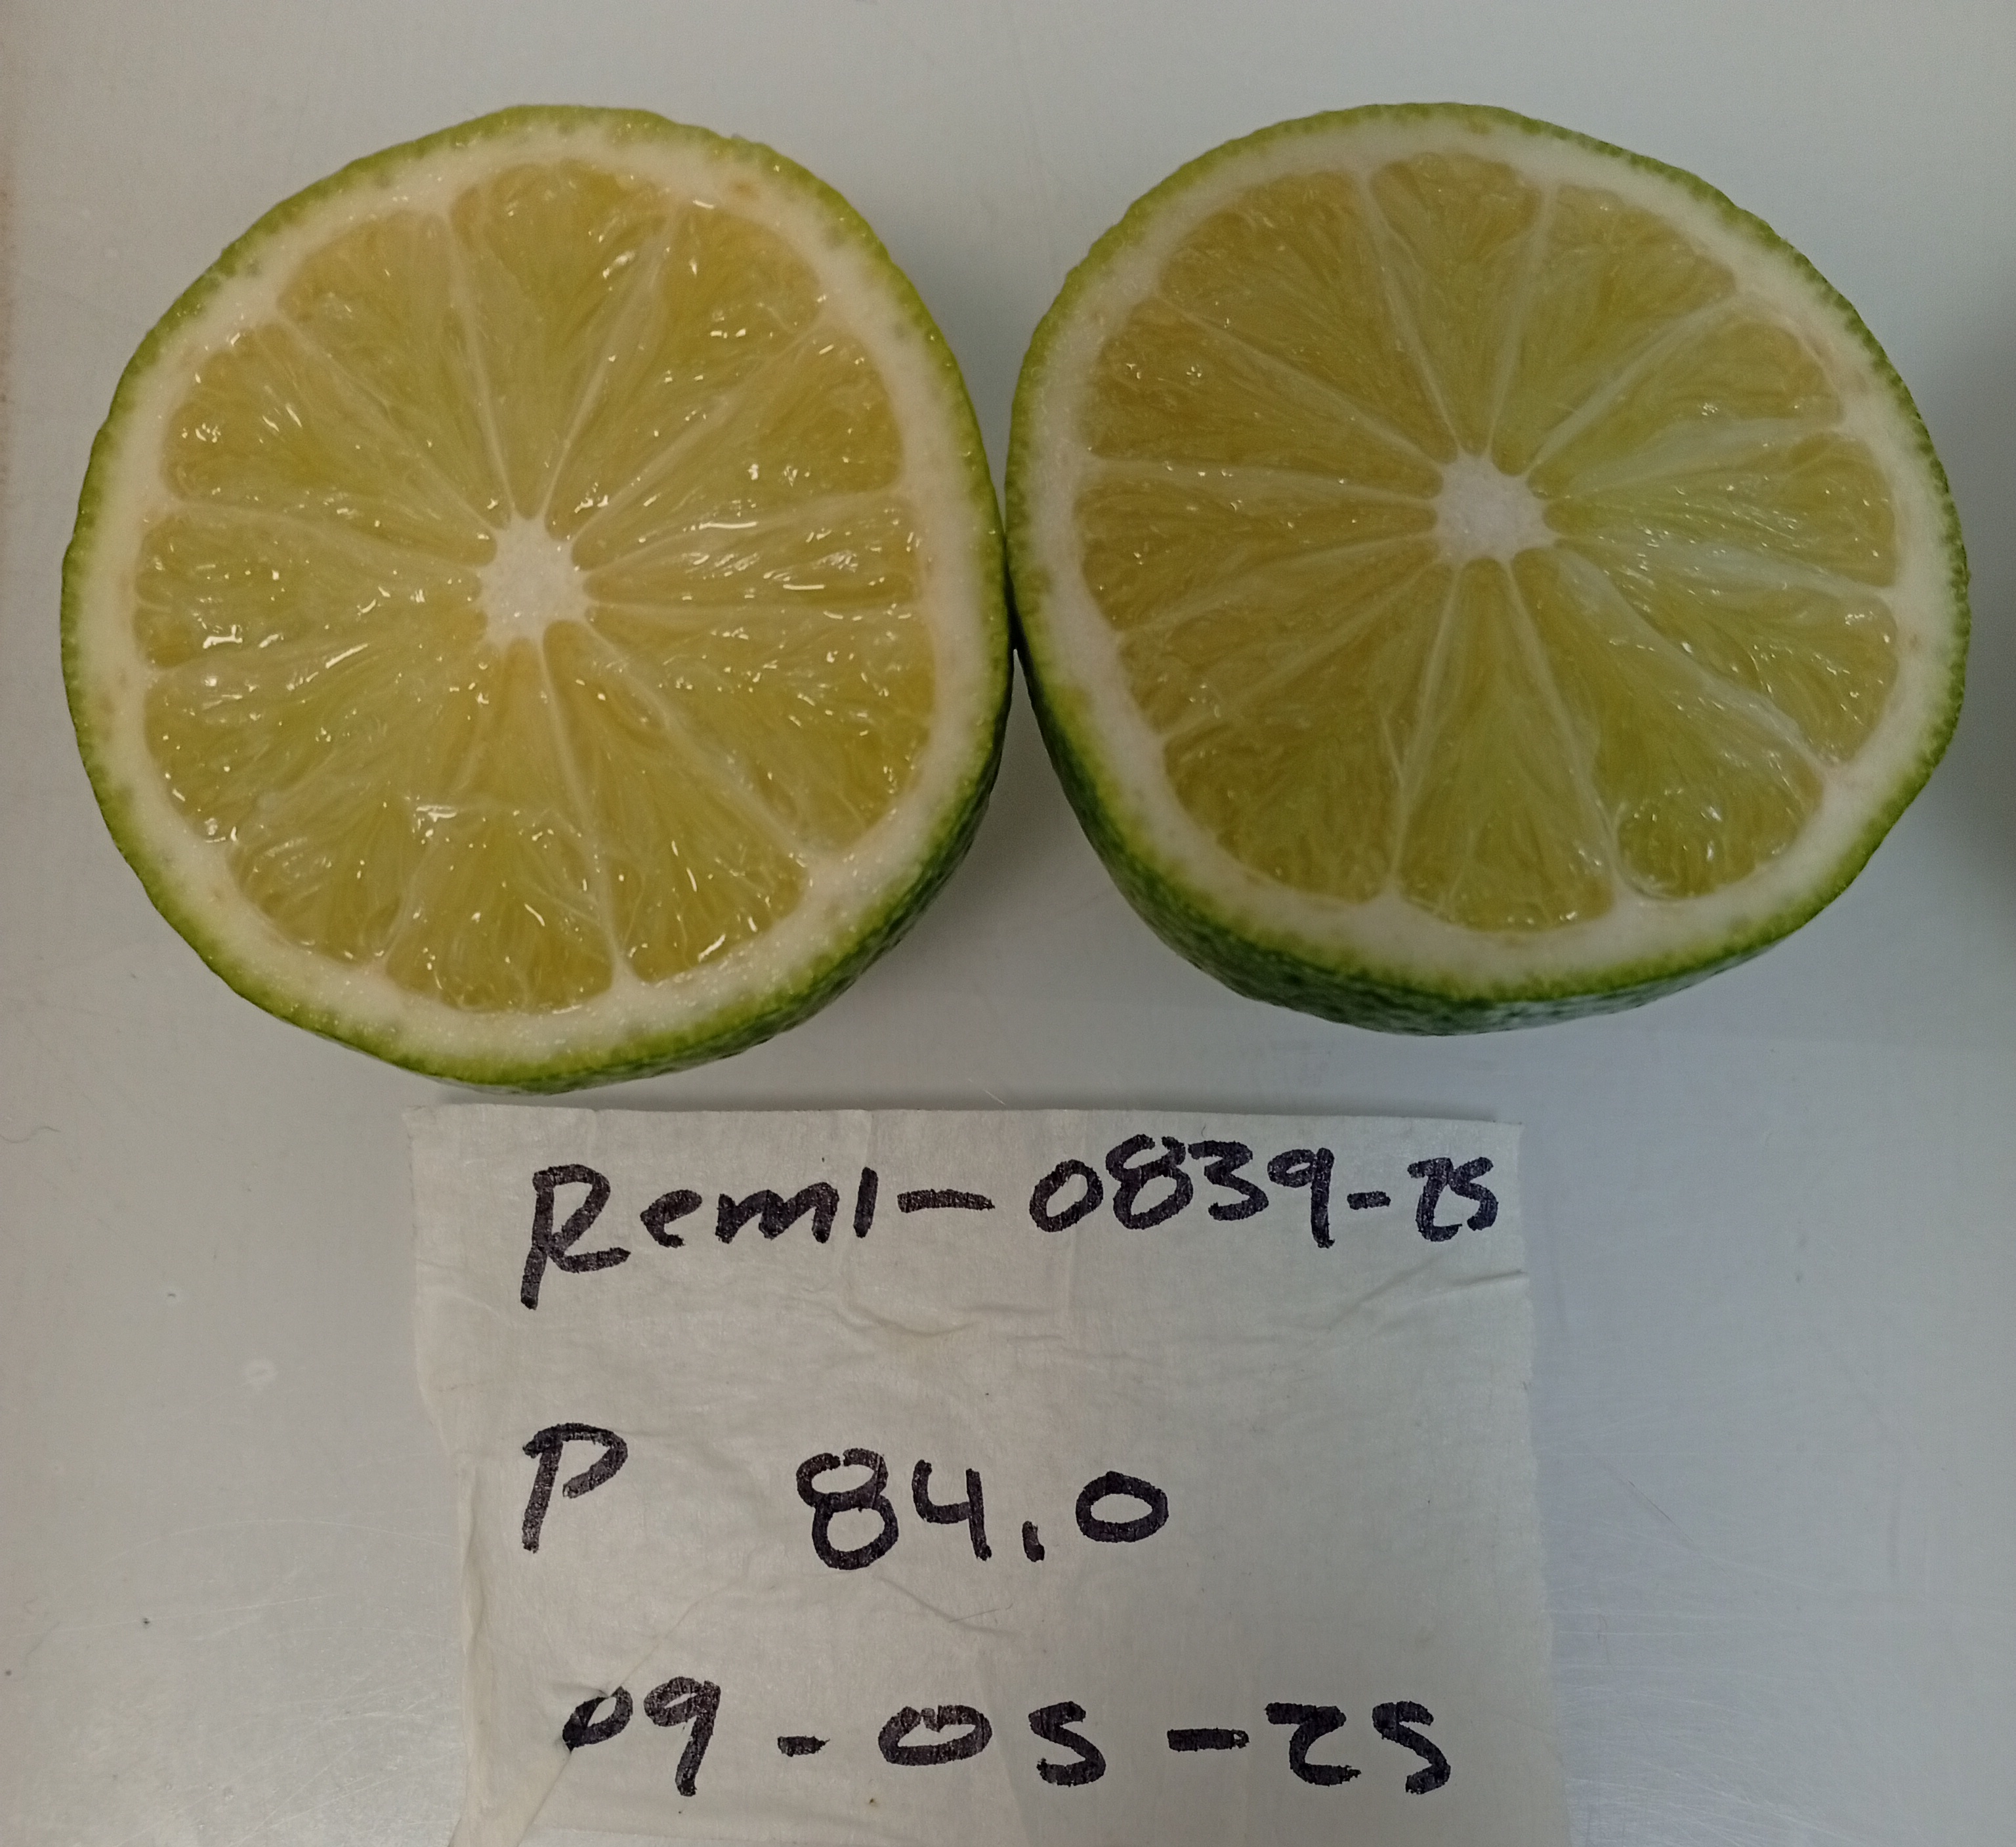 Reml-0839-25
P 84.0
09-05-25